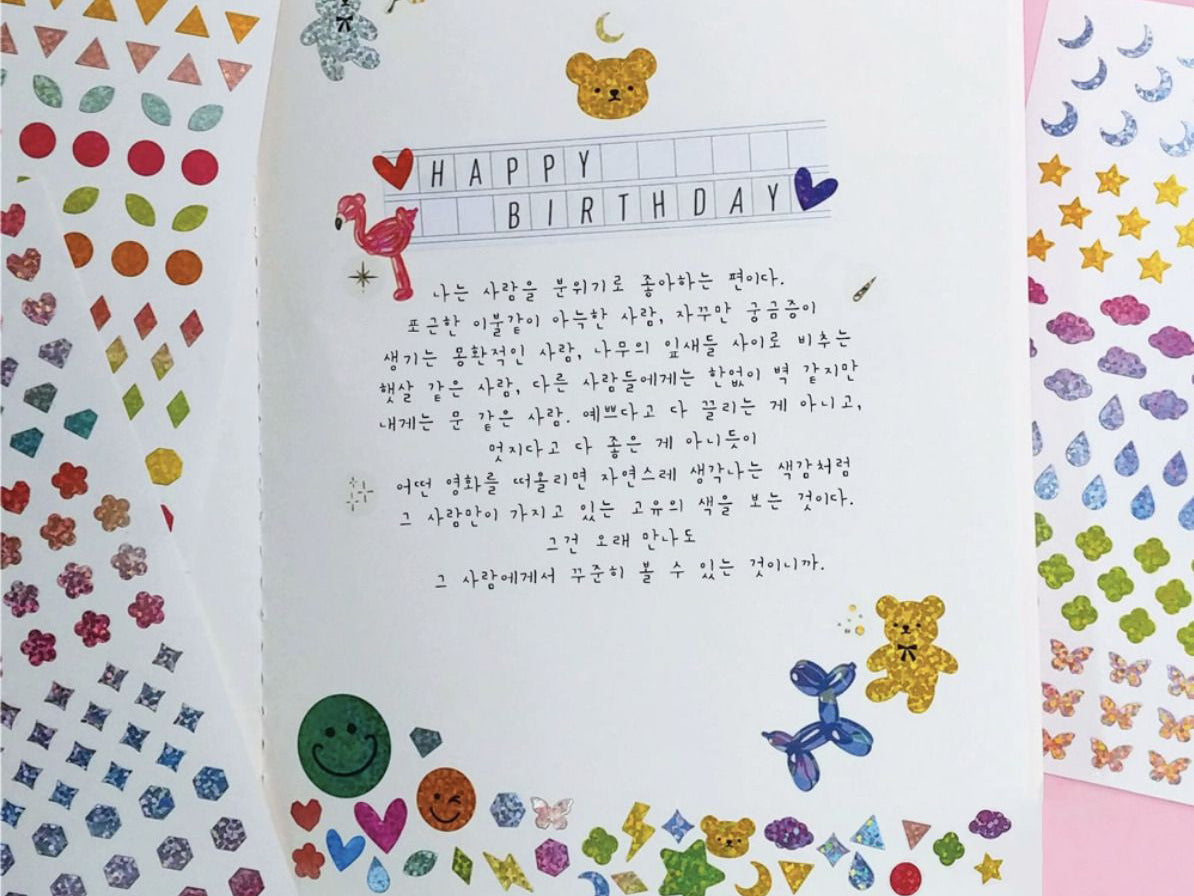 HAPPY
BIRTHDAY
나는 사람을 분위기로 좋아하는 편이다.
포근한 이불같이 아늑한 사람, 자꾸만 궁금증이
생기는 몽환적인 사람, 나무의 잎새들 사이로 비추는
햇살 같은 사람, 다른 사람들에게는 한없이 벽 같지만
내게는 문 같은 사람. 예쁘다고 다 끌리는 게 아니고,
멋지다고 다 좋은 게 아니듯이
어떤 영화를 떠올리면 자연스레 생각나는 색감처럼
그 사람만이 가지고 있는 고유의 색을 보는 것이다.
그건 오래 만나도
그 사람에게서 꾸준히 볼 수 있는 것이니까.